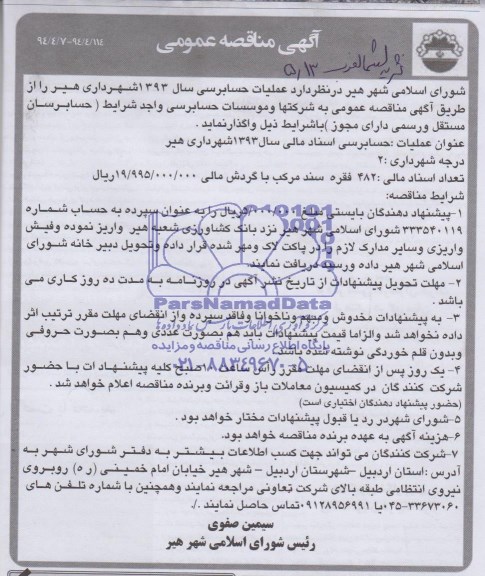 ۹۴/۴/۷-۹۴/۴/۱۱۴
آگهی مناقصه عمومی
۵/۱۳
شورای اسلامی شهر هیر درنظردارد عملیات حسابرسی سال ۱۳۹۳شهرداری هیـر را از
طریق آگهی مناقصه عمومی به شرکتها وموسسات حسابرسی واجد شرایط ( حسابرسان
مستقل ورسمی دارای مجوز )باشرایط ذیل واگذارنماید .
عنوان عملیات :حسابرسی اسناد مالی سال۱۳۹۳شهرداری هیر
درجه شهرداری :۲
تعداد اسناد مالی :۴۸۲ فقره سند مرکب با گردش مالی ۱۹/۹۹۵/۰۰۰/۰۰۰ریال
شرایط مناقصه:
۱-پیشنهاد دهندگان بایستی مبلغ ریال را به عنوان سپرده به حساب شـماره
۳۳۳۵۴۰۱۱۹ شورای اسلامی شهر هیر نزد بانک کشاورزی شعبه هیر واریز نموده وفیـش
واریزی وسایر مدارک لازم را در پاکت لاک ومهر شده قرار داده وتحویل دبیر خانه شورای
اسلامی شهر هیر داده ورسید دریافت نمایند.
۲- مهلت تحویل پیشنهادات از تاریخ نشر آگهی در روزنامـه به مـدت ده روز کاری می
باشد .
۳- به پیشنهادات مخدوش ومبهم وناخوانا وفاقد سپرده واز انقضای مهلت مقرر ترتیب اثر
داده نخواهد شد والزاما قیمت پیشنهادات باید هم بصورت عددی وهـم بصورت حروفـی
وبدون قلم خوردگی نوشته شده باشد.
ParsNamadData
پایگاه اطلاع رسانی مناقصه و مزایده
۰۲۱-۸۸۳۴۹۶۷۰-۵
۴- یک روز پس از انقضای مهلت مقرر راس ساعت ۱۰صبح کلیه پیشنهـادات با حضـور
شرکت کنند گان در کمیسیون معاملات باز وقرائت وبرنده مناقصه اعلام خواهد شد .
(حضور پیشنهاد دهندگان اختیاری است)
۵-شورای شهردر رد یا قبول پیشنهادات مختار خواهد بود .
۶-هزینه آگهی به عهده برنده مناقصه خواهد بود.
۷-شرکت کنندگان می تواند جهت کسب اطلاعات بیـشتـر به دفتـر شورای شهـر به
آدرس :استان اردبیل -شهرستان اردبیل - شهر هیر خیابان امام خمینی (ر ه) روبـروی
نیروی انتظامی طبقه بالای شرکت تعاونی مراجعه نمایند وهمچنین با شماره تلفـن های
۰۴۵-۳۳۶۷۳۰۶۰یا ۰۹۱۲۸۹۵۶۹۹۱تماس حاصل نمایند ./.
سیمین صفوی
رئیس شورای اسلامی شهر هیر